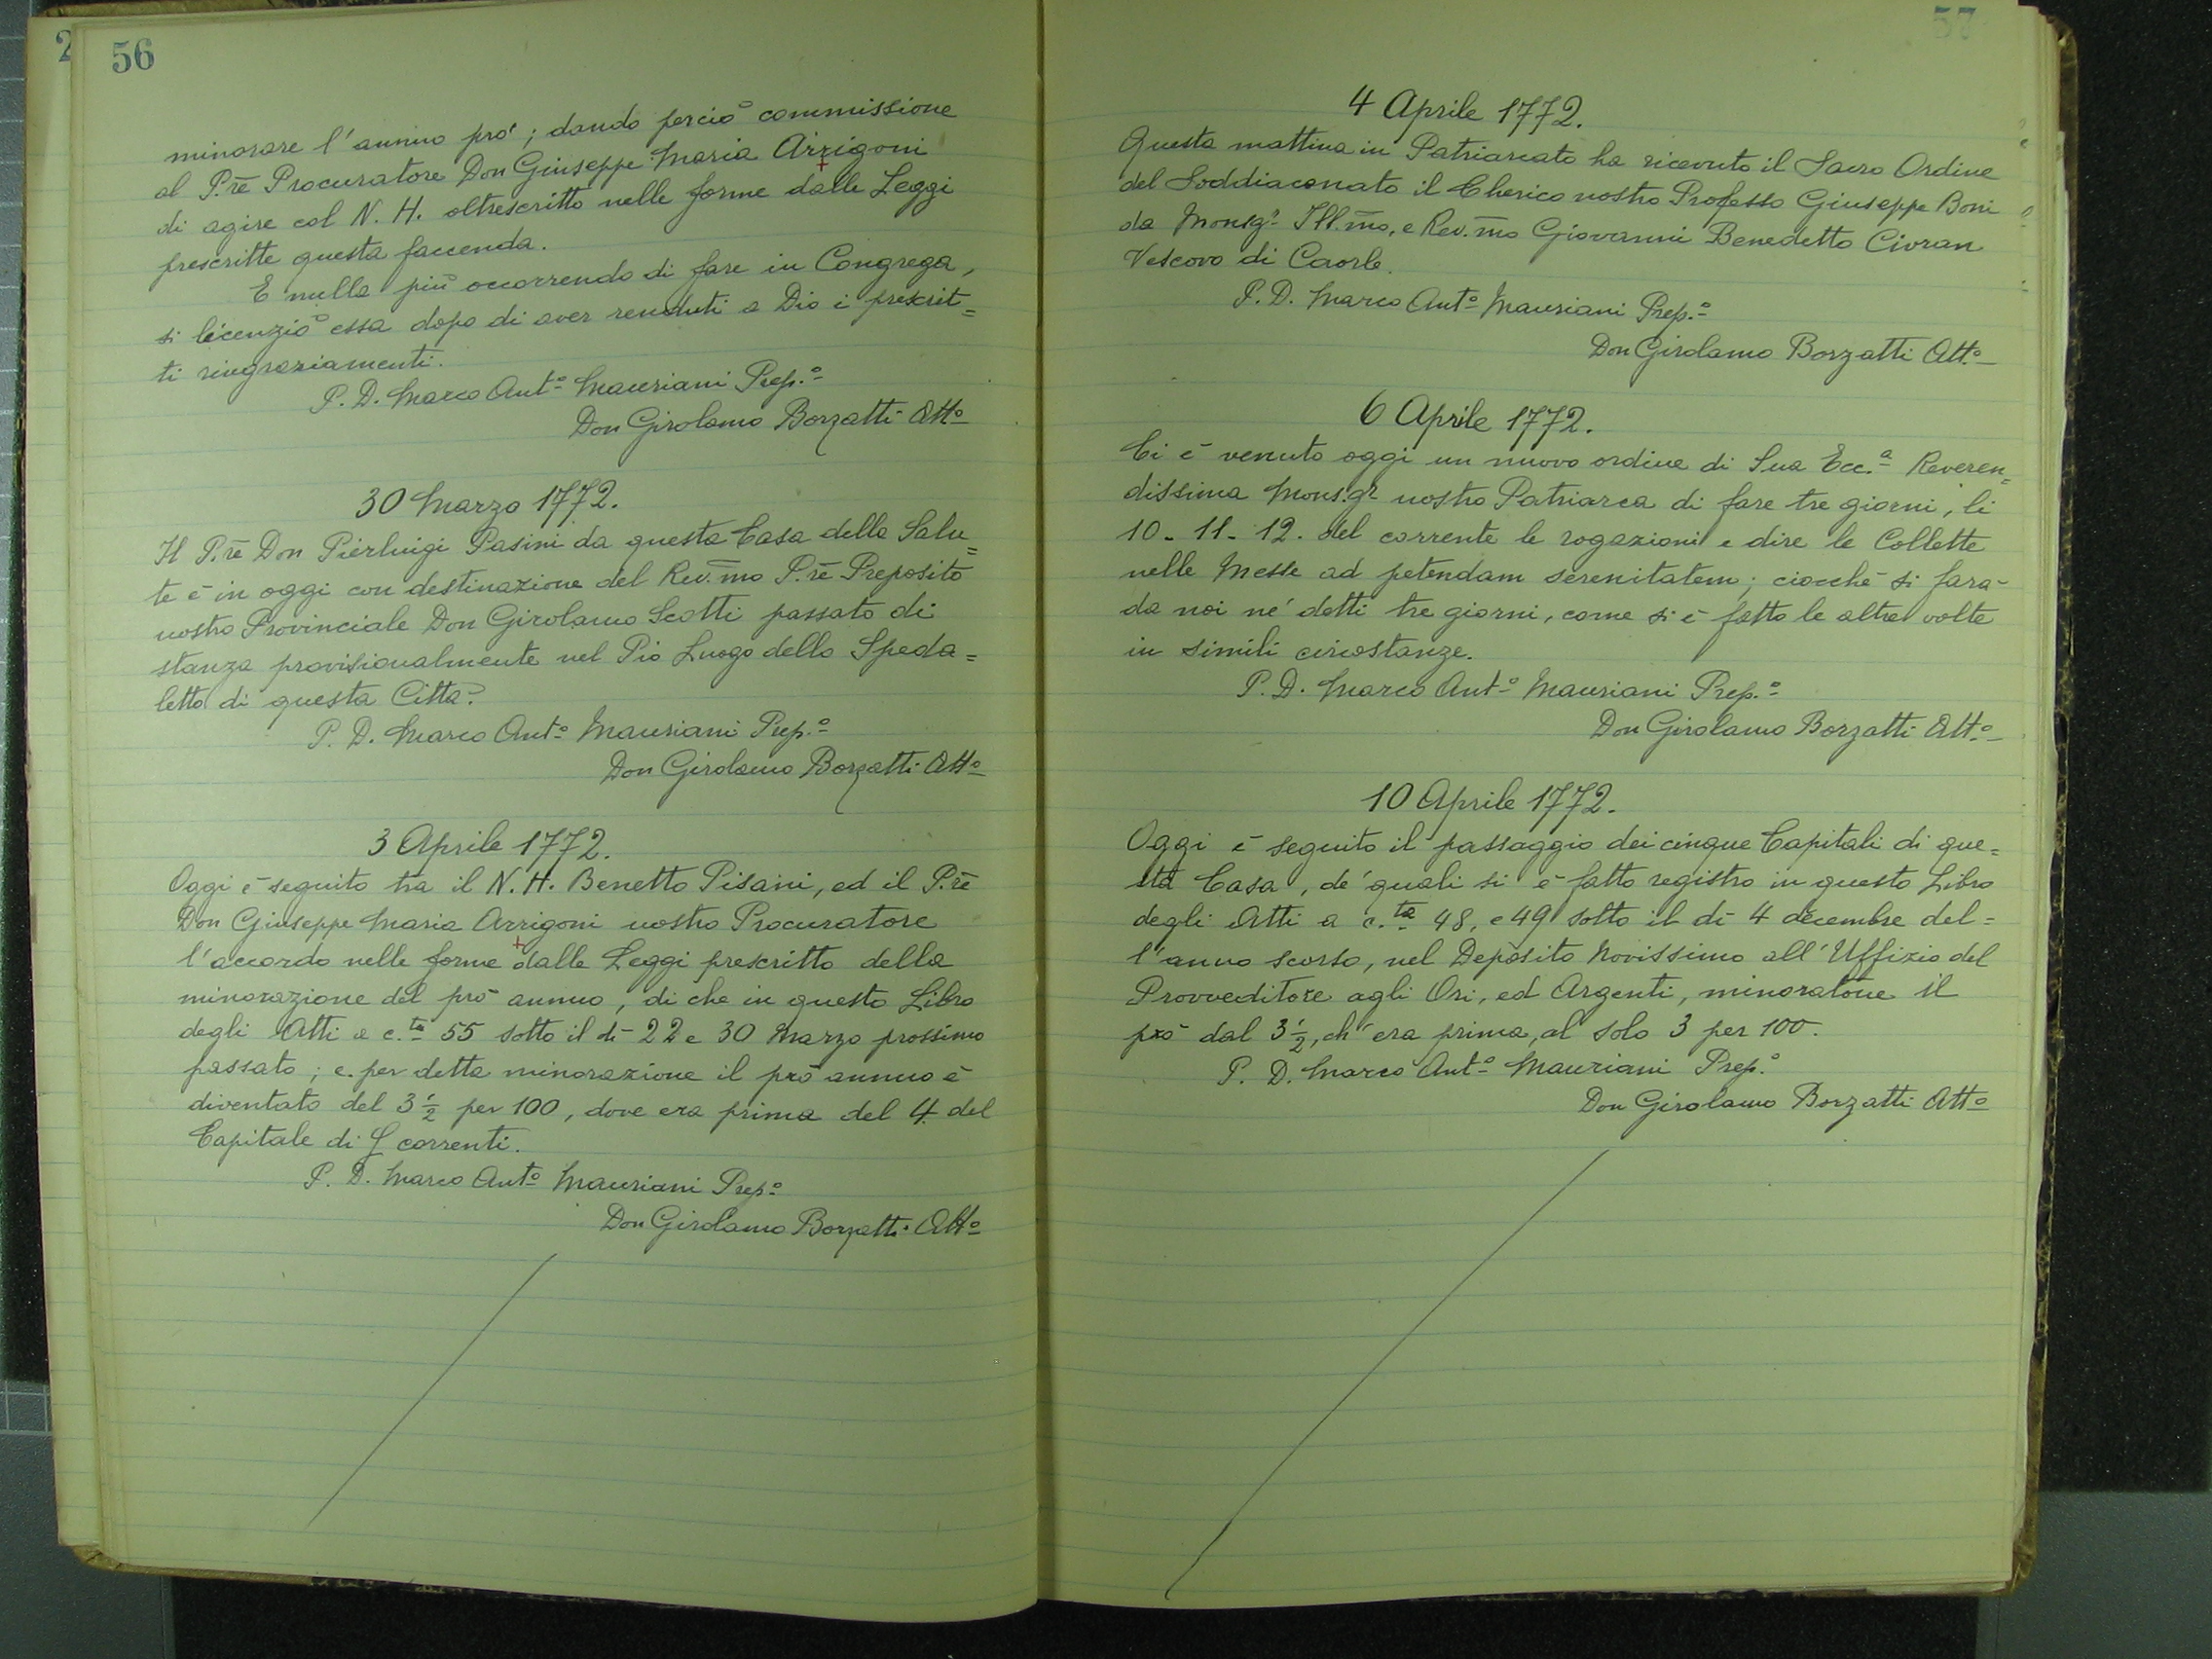 2
56
minorare l'annuo prò; dando perciò commissione
al P.rē Procuratore Don Giuseppe Maria Arrigoni
di agire col N. H. oltrescritto nelle forme dalle Leggi
prescritte questa faccenda.
E nulla più occorrendo di fare in Congrega,
si licenziò essa dopo di aver renduti a Dio i prescrit=
ti ringraziamenti.
P. D. Marco Ant.o Mauriani Prep.o
Don Girolamo Borzatti Att.o
30 Marzo 1772.
Il P.rē Don Pierluigi Pasini da questa Casa della Salu=
te è in oggi con destinazione del Rev.m̄o P.rē Preposito
nostro Provinciale Don Girolamo Scotti passato di
stanza provisionalmente nel Pio Luogo dello Speda=
letto di questa Città.
P. D. Marco Ant.o Mauriani Prep.o
Don Girolamo Borzatti Att.o
3 Aprile 1772.
Oggi è seguito tra il N. H. Benetto Pisani, ed il P.rē
Don Giuseppe Maria Arrigoni nostro Procuratore
l'accordo nelle forme dalle Leggi prescritto della
minorazione del prò annuo, di che in questo Libro
degli Atti a c.ta 55 sotto il dì 22 e 30 Marzo prossimo
passato; e per detta minorazione il prò annuo è
diventato del 3 1/2 per 100, dove era prima del 4 del
Capitale di correnti.
P. D. Marco Ant.o Mauriani Prep.o
Don Girolamo Borzatti Att.o
57
4 Aprile 1772.
Questa mattina in Patriarcato ha ricevuto il Sacro Ordine
del Soddiaconato il Cherico nostro Professo Giuseppe Boni
da Monsg.r Ill.m̄o, e Rev.m̄o Giovanni Benedetto Civran
Vescovo di Caorle.
P. D. Marco Ant.o Mauriani Prep.o
Don Girolamo Borzatti Att.o
6 Aprile 1772.
Ci è venuto oggi un nuovo ordine di Sua Ecc.a Reveren=
dissima Mons.gr nostro Patriarca di fare tre giorni, li
10 - 11 - 12. del corrente le rogazioni e dire le Collette
nelle Messe ad petendam serenitatem; ciocchè si farà
da noi ne' detti tre giorni, come si è fatto le altre volte
in simili circostanze.
P. D. Marco Ant.o Mauriani Prep.o
Don Girolamo Borzatti Att.o
10 Aprile 1772.
Oggi è seguito il passaggio dei cinque Capitali di que=
sta Casa, de' quali si è fatto registro in questo Libro
degli Atti a c.ta 48, e 49 sotto il dì 4 decembre del=
l'anno scorso, nel Deposito Novissimo all'Uffizio del
Provveditore agli Ori, ed Argenti, minoratone il
prò dal 3 1/2, ch'era prima, al solo 3 per 100.
P. D. Marco Ant.o Mauriani Prep.o
Don Girolamo Borzatti Att.o